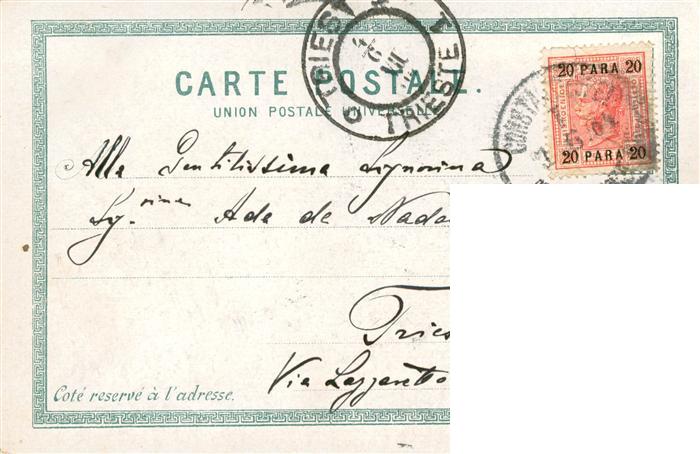 TRIESTE 1
TRIESTE
CARTE POSTALE.
UNION POSTALE UNIVERSELLE
20 PARA 20
20 PARA 20
Alla Gentilissima Signorina
Sg.rina Ada de Nada
Tries
Via Lazzaretto
Coté reservé à l'adresse.